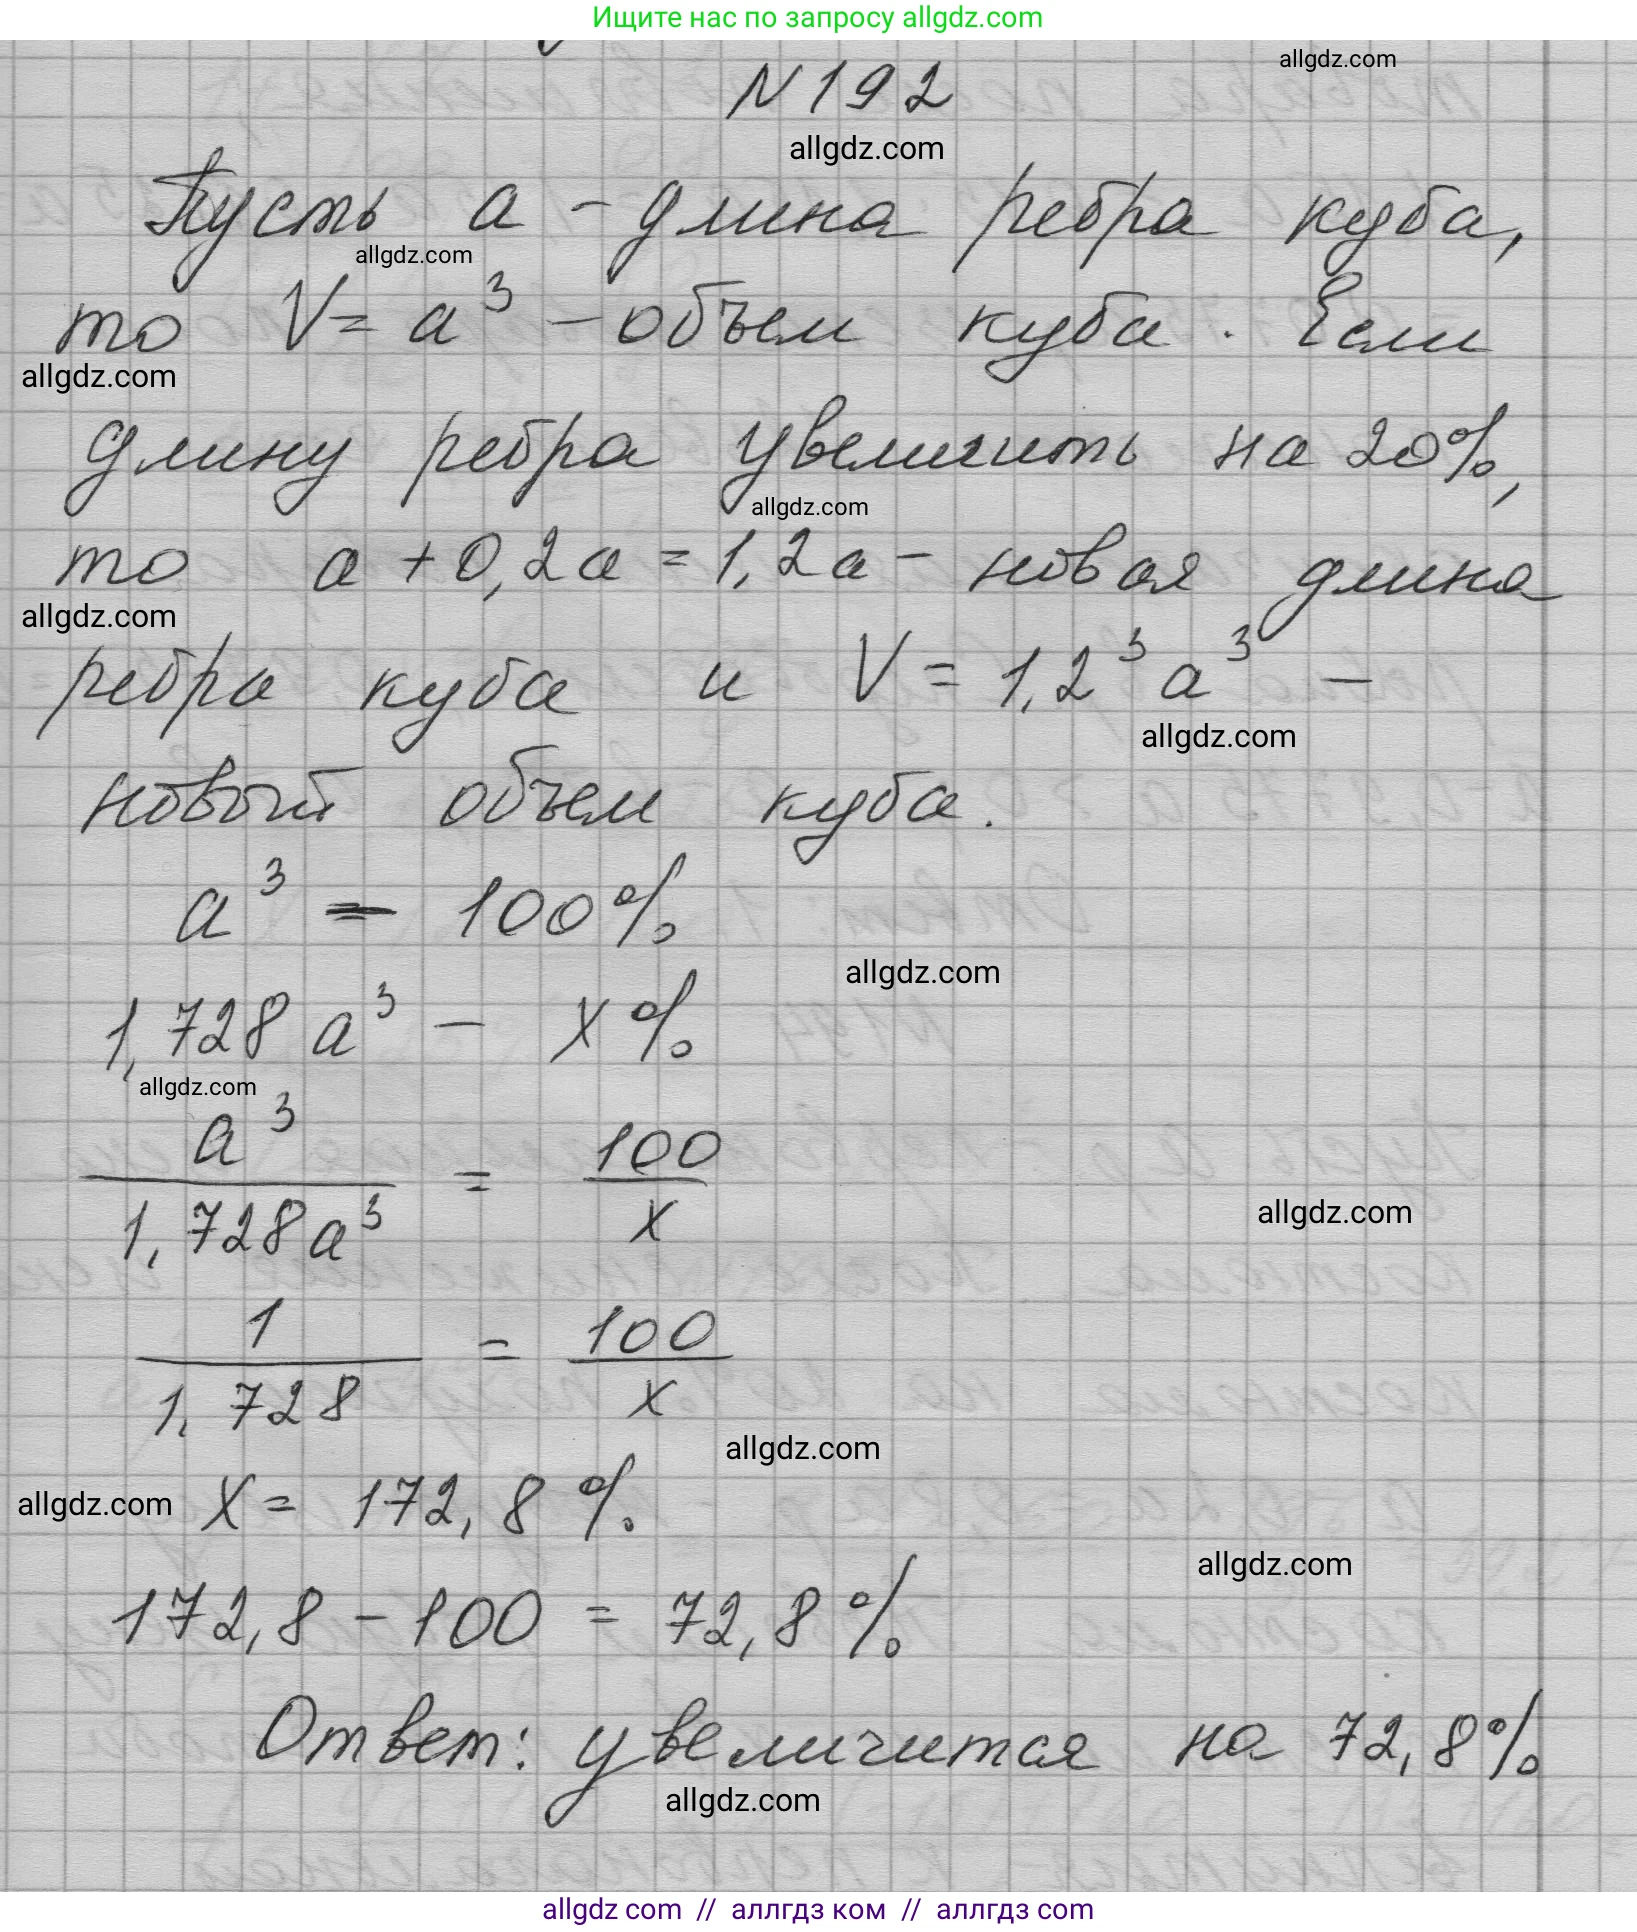 Ищите нас по запросу allgdz.com
allgdz.com
N192
allgdz.com
Пусть a - длина ребра куба,
allgdz.com
то V = a³ - объем куба. Если
allgdz.com
длину ребра увеличить на 20%,
allgdz.com
то a + 0,2a = 1,2a - новая длина
allgdz.com
ребра куба и V = 1,2³a³ -
allgdz.com
новый объем куба.
a³ - 100%
allgdz.com
1,728a³ - x%
allgdz.com
a³/1,728a³ = 100/x
allgdz.com
1/1,728 = 100/x
allgdz.com
allgdz.com
x = 172,8%
allgdz.com
172,8 - 100 = 72,8%
Ответ: увеличится на 72,8%
allgdz.com
allgdz com // аллгдз ком // аллгдз com